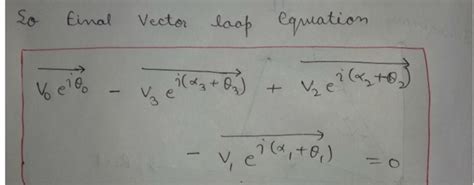 So Final Vector loop Equation
V₀ e^{iθ₀} - V₃ e^{i(α₃ + θ₃)} + V₂ e^{i(α₂ + θ₂)}
- V₁ e^{i(α₁ + θ₁)} = 0